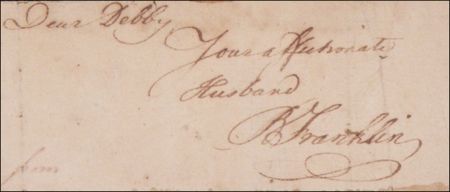 Dear Debby
Your affectionate
Husband
B Franklin
from